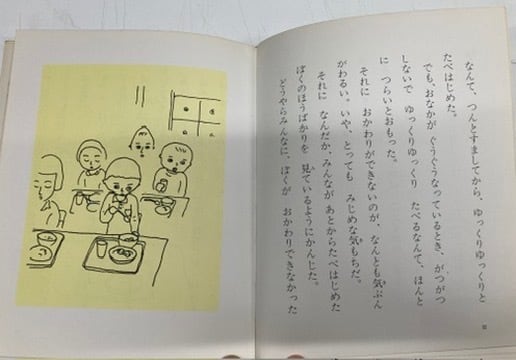 なんて、つんとすましてから、ゆっくりゆっくりと
たべはじめた。
でも、おなかが ぐうぐうなっているとき、がつがつ
しないで ゆっくりゆっくり たべるなんて、ほんと
に つらいとおもった。
それに おかわりができないのが、なんとも気ぶん
がわるい。いや、とっても みじめな気もちだ。
それに なんだか、みんなが あとからたべはじめた
ぼくのほうばかりを 見ているようにかんじた。
どうやらみんなに、ぼくが おかわりできなかった